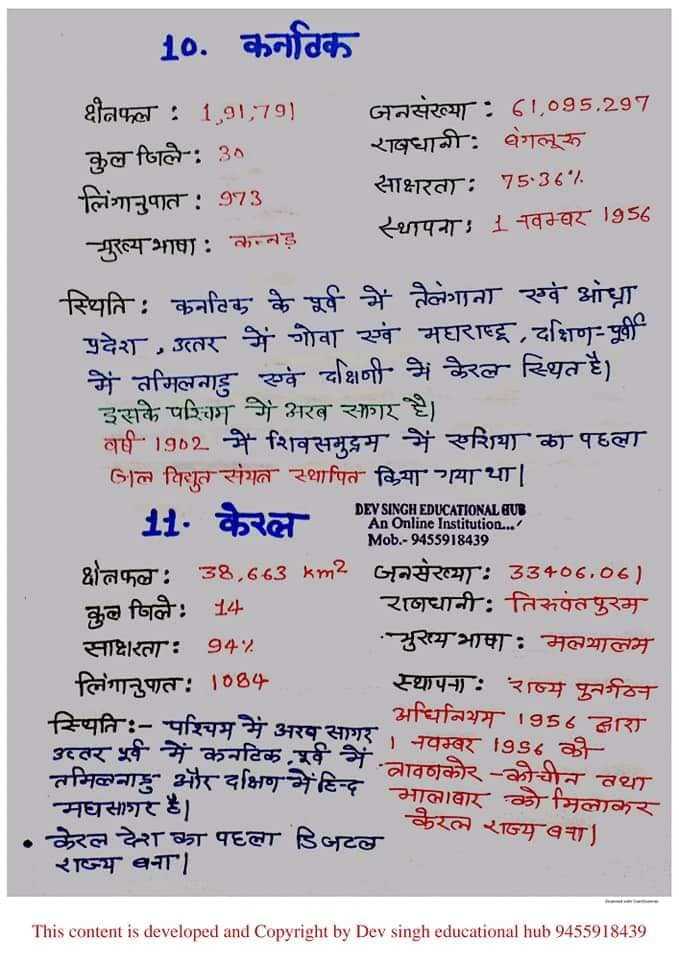 10. कर्नाटक
क्षेत्रफल : 1,91,791
जनसंख्या : 61,095.297
कुल जिले : 30
राजधानी : बंगलूरू
लिंगानुपात : 973
साक्षरता : 75.36%
मुख्य भाषा : कन्नड़
स्थापना : 1 नवम्बर 1956
स्थिति : कर्नाटक के पूर्व में तेलंगाना एवं आंध्रा
प्रदेश , उत्तर में गोवा एवं महाराष्ट्र , दक्षिण-पूर्वी
में तमिलनाडु एवं दक्षिणी में केरल स्थित है|
इसके पश्चिम में अरब सागर है|
वर्ष 1902 में शिवसमुद्रम में एशिया का पहला
जल विद्युत संयंत्र स्थापित किया गया था|
11. केरल
DEV SINGH EDUCATIONAL HUB
An Online Institution...
Mob.- 9455918439
क्षेत्रफल : 38,663 km2
जनसंख्या : 33406.061
कुल जिले : 14
राजधानी : तिरूवंतपुरम
साक्षरता : 94%
मुख्य भाषा : मलयालम
लिंगानुपात : 1084
स्थिति :- पश्चिम में अरब सागर
उत्तर पूर्व में कर्नाटक , पूर्व में
तमिलनाडु और दक्षिण में हिन्द
महासागर है|
• केरल देश का पहला डिजिटल
राज्य बना|
स्थापना : राज्य पुनर्गठन
अधिनियम 1956 द्वारा
1 नवम्बर 1956 को
त्रावणकोर - कोचीन तथा
मालाबार को मिलाकर
केरल राज्य बना|
This content is developed and Copyright by Dev singh educational hub 9455918439